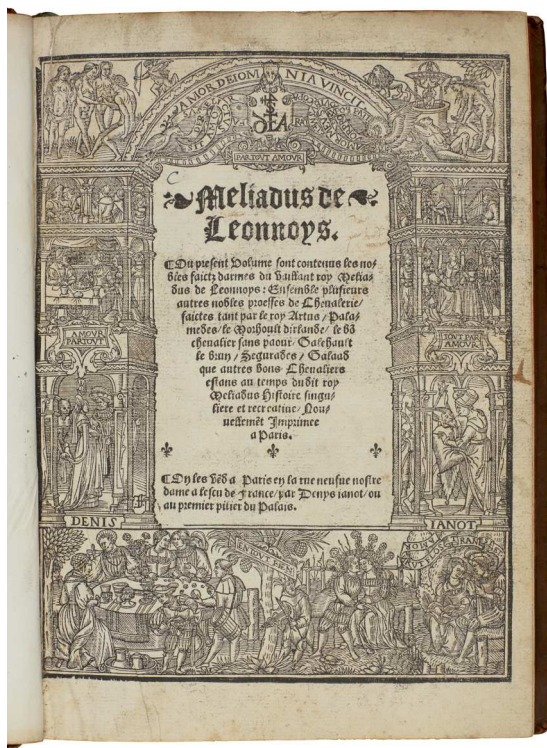 AMOR DEI OMNIA VINCIT
PARTOVT AMOVR
Meliadus de
Leonnoys.
⸿Du present volume sont contenus les no-
bles faictz darmes du vaillant roy Melia-
dus de Leonnoys: Ensemble plusieurs
autres nobles proesses de Cheualerie/
faictes tant par le roy Artus/Pala-
medes/le Morhoult dirlande/le bõ
cheualier sans paour/Galehault
le brun/Segurades/Galaad
que autres bons Cheualiers
estans au temps dudit roy
Meliadus Histoire singu-
liere et recreatiue/Nou-
uellemẽt Imprimee
a Paris.
AMOVR
PARTOVT
TOVT PAR
AMOVR
⸿On les vẽd a Paris en la rue neufue nostre
dame a lescu de France/par Denys ianot/ou
au premier pilier du Palais.
DENIS IANOT